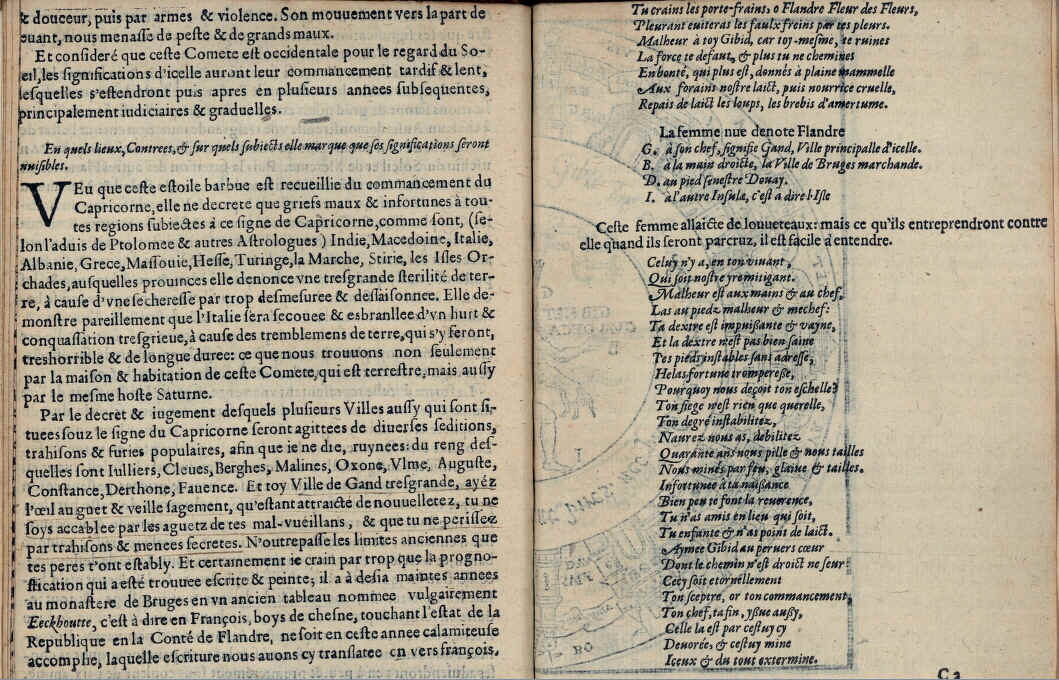 & douceur, puis par armes & violence. Son mouuement vers la part de
uant, nous menasse de peste & de grands maux.
Et consideré que ceste Comete est occidentale pour le regard du So-
eil, les significations d'icelle auront leur commancement tardif & lent,
lesquelles s'estendront puis apres en plusieurs annees subsequentes,
principalement iudiciaires & graduelles.
En quels lieux, Contrees, & sur quels subiects elle marque que ses significations seront
nuisibles.
VEu que ceste estoile barbue est recueillie du commancement du
Capricorne, elle ne decrete que griefs maux & infortunes à tou-
tes regions subiectes à ce signe de Capricorne, comme sont, (se-
lon l'aduis de Ptolomee & autres Astrologues) Indie, Macedoine, Italie,
Albanie, Grece, Massouie, Hesse, Turinge, la Marche, Stirie, les Isles Or-
chades, ausquelles prouinces elle denonce vne tresgrande sterilité de ter-
re, à cause d'vne secheresse par trop desmesuree & dessaisonnee. Elle de-
monstre pareillement que l'Italie sera secouee & esbranllee d'vn hurt &
conquassation tresgrieue, à cause des tremblemens de terre, qui s'y feront,
treshorrible & de longue duree: ce que nous trouuons non seulement
par la maison & habitation de ceste Comete, qui est terrestre, mais aussy
par le mesme hoste Saturne.
Par le decret & iugement desquels plusieurs Villes aussy qui sont si-
tuees souz le signe du Capricorne seront agittees de diuerses seditions,
trahisons & furies populaires, afin que ie ne die, ruynees: du reng des-
quelles sont Iulliers, Cleues, Berghes, Malines, Oxone, Vlme, Auguste,
Constance, Derthone, Fauence. Et toy Ville de Gand tresgrande, ayéz
l'œil au guet & veille sagement, qu'estant attraicte de nouuelletez, tu ne
soys accablee par les aguetz de tes mal-vueillans, & que tu ne perissez
par trahisons & menees secretes. N'outrepasse les limites anciennes que
tes peres t'ont estably. Et certainement ie crain par trop que la progno-
stication qui a esté trouuee escrite & peinte, il a à desia maintes annees
au monastere de Bruges en vn ancien tableau nommee vulgairement
Eeckhoutte, c'est à dire en François, boys de chesne, touchant l'estat de la
Republique en la Conté de Flandre, ne soit en ceste annee calamiteuse
accomplie, laquelle escriture nous auons cy translatee en vers françois.
Tu crains les porte-frains: o Flandre Fleur des Fleurs,
Pleurant euiteras les faulx freins par tes pleurs.
Malheur à toy Gibid, car toy-mesme, te ruines
La force te defaut, & plus tu ne chemines
En bonté, qui plus est, donnés à plaine mammelle
Aux forains nostre laict, puis nourrice cruelle,
Repais de laict les loups, les brebis d'amertume.
La femme nue denote Flandre
G. à son chef, signifie Gand, Ville principalle d'icelle.
B. à la main droicte, la Ville de Bruges marchande.
D. au pied senestre Douay.
I. a l'autre Insula, c'est à dire l'Isle
Ceste femme allaicte de louueteaux: mais ce qu'ils entreprendront contre
elle quand ils seront parcruz, il est facile à entendre.
Celuy n'y a, en ton viuant,
Qui soit nostre yre mitigant.
Malheur est aux mains & au chef,
Las au piedz malheur & mechef:
Ta dextre est impuissante & vayne,
Et la dextre n'est pas bien saine
Tes pieds instables sans adresse,
Helas fortune tromperesse,
Pourquoy nous deçoit ton eschelle?
Ton siege n'est rien que querelle,
Ton degré instabilitez,
Naurez nous as, debilitez
Quarante ans nous pille & nous tailles
Nous minés par feu, glaiue & tailles.
Infortunee à ta naissance
Bien peu te font la reuerence,
Tu n'as amis en lieu qui soit,
Tu enfante & n'as point de laict.
Aymee Gibid au peruers cœur
Dont le chemin n'est droict ne seur:
Cecy soit eternellement
Ton sceptre, or ton commancement,
Ton chef, ta fin, yssue aussy,
Celle la est par cestuy cy
Deuorée, & cestuy mine
Iceux & du tout extermine.
C 2